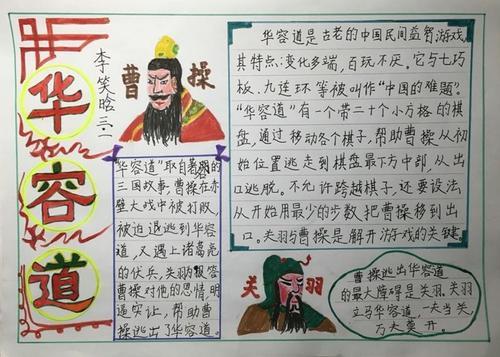 华容道
李笑晗
三.2
曹操
华容道是古老的中国民间益智游戏,
其特点:变化多端,百玩不厌。它与七巧
板、九连环等被叫作“中国的难题”。
“华容道”有一个带二十个小方格的棋
盘,通过移动各个棋子,帮助曹操从初
始位置逃走到棋盘最下方中部,从出
口逃脱。不允许跨越棋子,还要设法
从开始用最少的步数把曹操移到出
口。关羽与曹操是解开游戏的关键
“华容道”取自著名的
三国故事,曹操在赤
壁大戏中被打败,
被迫退逃到华容
道,又遇上诸葛亮
的伏兵,关羽
曹操对他的恩情,明
逼实让,帮助曹
操逃出了华容道。
关羽
曹操逃出华容道
的最大障碍是关羽。关羽
立马华容道,一夫当关,
万夫莫开。